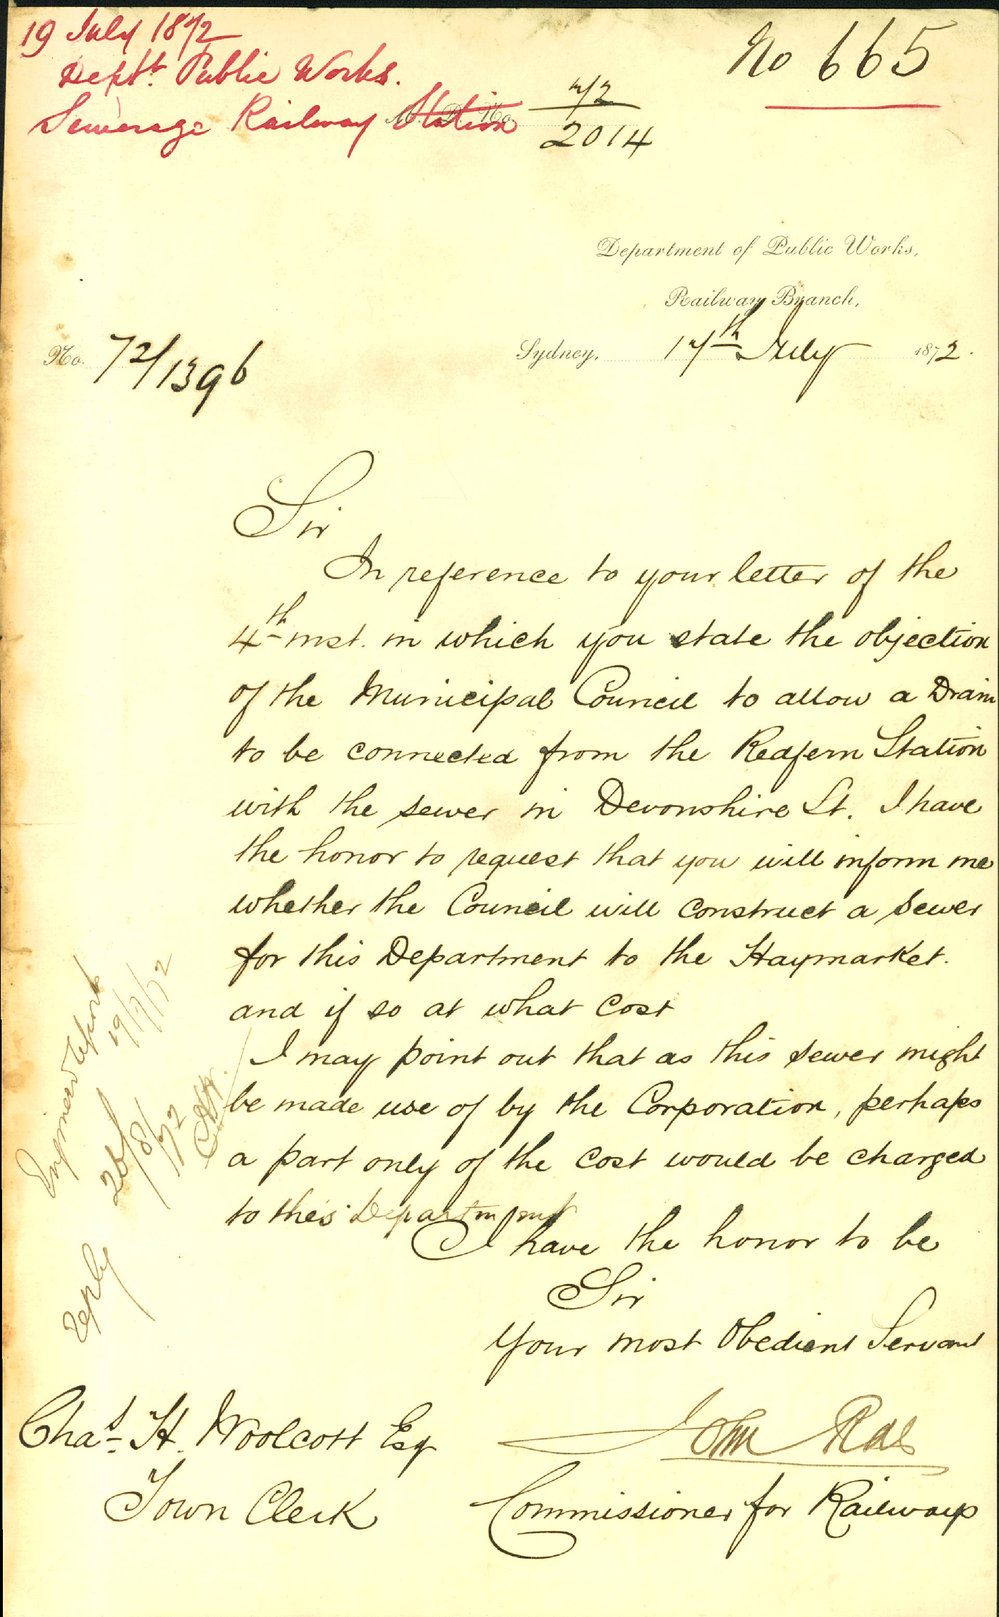 19 July 1872
Dept. Public Works.
Sewerage Railway Station
No 665
72
2014
Department of Public Works,
Railway Branch,
No. 72/1396
Sydney, 17th July 1872.
Sir
In reference to your letter of the
4th inst. in which you state the objection
of the Municipal Council to allow a Drain
to be connected from the Redfern Station
with the sewer in Devonshire St. I have
the honor to request that you will inform me
whether the Council will construct a sewer
for this Department to the Haymarket.
and if so at what cost
I may point out that as this sewer might
be made use of by the Corporation, perhaps
a part only of the cost would be charged
to this Department
I have the honor to be
Sir
Your most Obedient Servant
John Rae
Commissioner for Railways
Chas. H. Woolcott Esq
Town Clerk
Engineer report
19/7/72
reply
20/8/72
CHW.